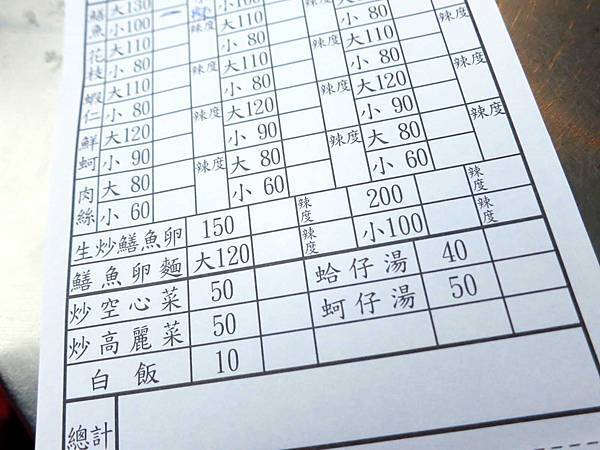 鱔魚 大130 一 辣度
小 80 大110 小 80 辣度
花枝 大110 小 80 大110 辣度
小 80 辣度 大110 辣度 小 80 辣度
蝦仁 大110 小 80 大120
小 80 辣度 大120 辣度 小 90 辣度
鮮蚵 大120 小 90 大 80
小 90 辣度 大 80 辣度 小 60
肉絲 大 80 小 60 辣度
小 60 辣度 200
生炒鱔魚卵 150 辣度 小100 辣度
鱔魚卵麵 大120 辣度 蛤仔湯 40
炒空心菜 50 蚵仔湯 50
炒高麗菜 50
白飯 10
總計